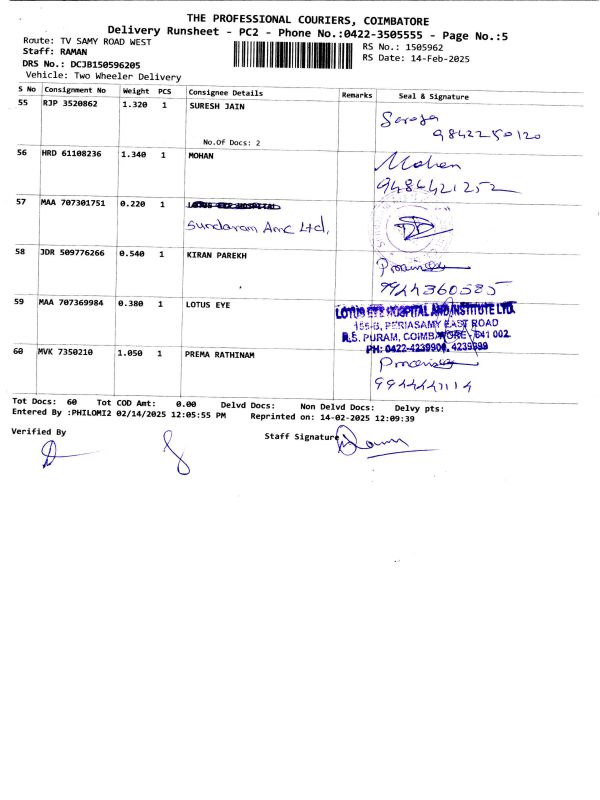 THE PROFESSIONAL COURIERS, COIMBATORE
Delivery Runsheet - PC2 - Phone No.:0422-3505555 - Page No.:5
Route: TV SAMY ROAD WEST
RS No.: 1505962
Staff: RAMAN
RS Date: 14-Feb-2025
DRS No.: DCJB150596205
Vehicle: Two Wheeler Delivery
S No Consignment No Weight PCS Consignee Details Remarks Seal & Signature
55 RJP 3520862 1.320 1 SURESH JAIN
9842250120
No.Of Docs: 2
56 HRD 61108236 1.340 1 MOHAN Mohan
9486421252
57 MAA 707301751 0.220 1 LOTUS EYE HOSPITAL
Sundaram Amc Ltd,
58 JDR 509776266 0.540 1 KIRAN PAREKH
9944360585
59 MAA 707369984 0.380 1 LOTUS EYE LOTUS EYE HOSPITAL AND INSTITUTE LTD.
155-B, PERIASAMY EAST ROAD
R.S. PURAM, COIMBATORE - 641 002.
PH: 0422-4239900, 4239999
60 MVK 7350210 1.050 1 PREMA RATHINAM
9944447114
Tot Docs: 60 Tot COD Amt: 0.00 Delvd Docs: Non Delvd Docs: Delvy pts:
Entered By :PHILOMI2 02/14/2025 12:05:55 PM Reprinted on: 14-02-2025 12:09:39
Verified By
Staff Signature